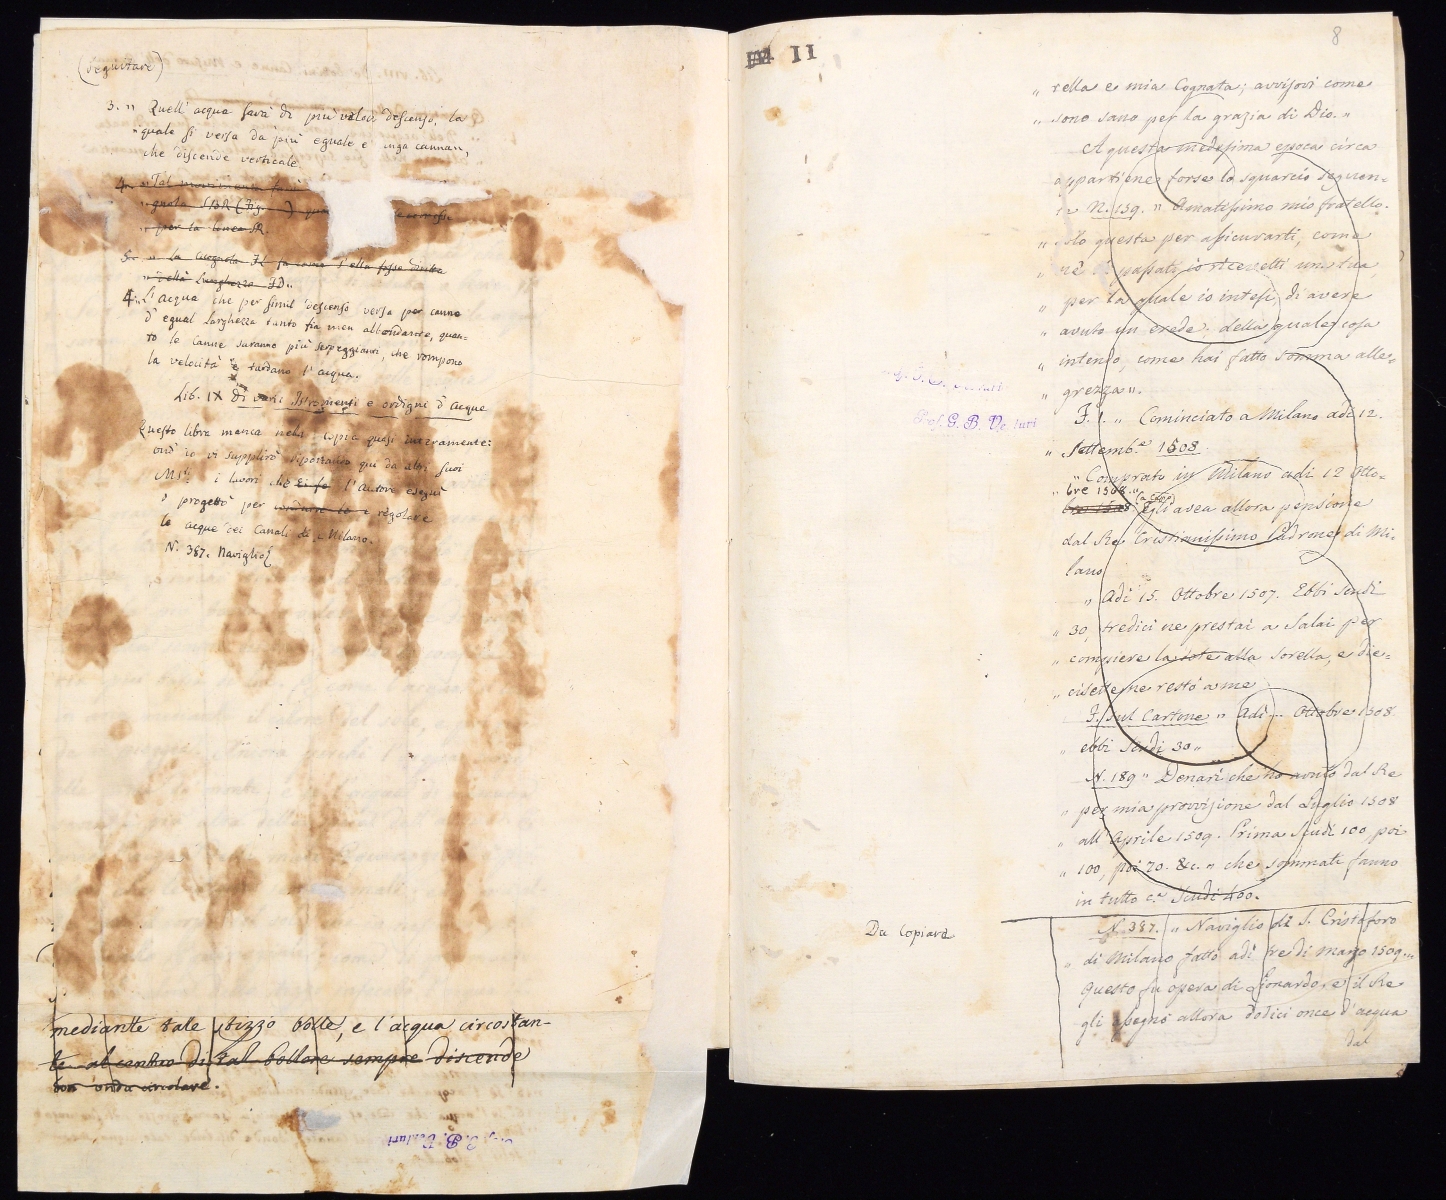 (Seguitare)
3. „ Quell' acqua sarà di più veloce descenso, la
„ quale si versa da più eguale e lunga canna,
che discende verticale.
4. „ Tal movimento
„ gnola SBR (Fig. )
„ per la linea SR.
5. „ la Cicognola
„ della lunghezza
4. „ L'acqua che per simil descenso versa per canne
d'egual larghezza tanto fia men abbondante, quan-
to le canne saranno più serpeggianti, che rompono
la velocità e tardano l'acqua.
Lib. IX di varj Istromenti e ordigni d'acque
Questo libro manca nella copia quasi interamente:
ond' io vi supplirò riportando qui da altri suoi
Mss. i lavori che l'autore eseguì
o progettò per regolare
le acque dei Canali di Milano.
N. 387. Naviglio
mediante tale stizzo bolle, e l'acqua circostan-
te al centro di tal bollore sempre discende
con onda circolare.
G. B. Venturi
II
8
„ rella e mia Cognata; avvisovi come
„ sono sano per la grazia di Dio. „
A questa medesima epoca circa
appartiene forse lo squarcio seguen-
te N. 139. „ Amatissimo mio fratello.
„ Solo questa per assicurarti, come
„ ne dì passati io ricevetti una tua,
„ per la quale io intesi, di avere
„ avuto un erede. della quale cosa
„ intendo, come hai fatto somma alle-
„ grezza „.
F. 1. „ Cominciato a Milano adì 12.
„ Settemb.e 1508.
„ Comprato in Milano adì 12 Otto-
„ bre 1508. „
Egli avea allora pensione
dal Re Cristianissimo Padrone di Mi-
lano
„ Adì 15. Ottobre 1507. Ebbi scudi
„ 30, tredici ne prestai a Salai per
„ compiere la dote alla sorella, e die-
„ cisette ne restò a me
F. sul Cartone „ Adì .. Ottobre 1508
„ ebbi Scudi 30 „
N. 189 „ Denari che ho avuto dal Re
„ per mia provvisione dal Luglio 1508
„ all' Aprile 1509. Prima Scudi 100, poi
„ 100, poi 70. &c. „ che sommati fanno
in tutto c.a Scudi 400.
Prof. G. B. Venturi
Da Copiare
N. 387. „ Naviglio di S. Cristoforo
„ di Milano fatto adì tre di marzo 1509. „
Questo fu opera di Lionardo, e il Re
gli assegnò allora dodici once d'acqua
dal